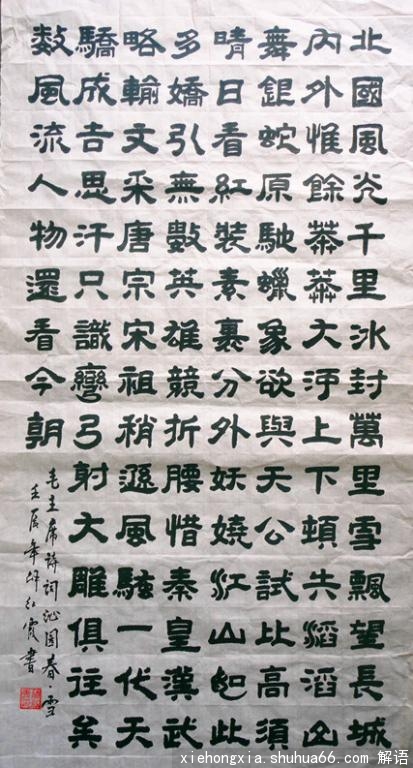 北國風光千里冰封萬里雪飄望長城
內外惟餘莽莽大河上下頓失滔滔山
舞銀蛇原馳蠟象欲與天公試比高須
晴日看紅裝素裹分外妖嬈江山如此
多嬌引無數英雄競折腰惜秦皇漢武
略輸文采唐宗宋祖稍遜風騷一代天
驕成吉思汗只識彎弓射大雕俱往矣
數風流人物還看今朝
毛主席詩詞沁園春·雪
壬辰年解紅霞書
xiehongxia.shuhua66.com 解语